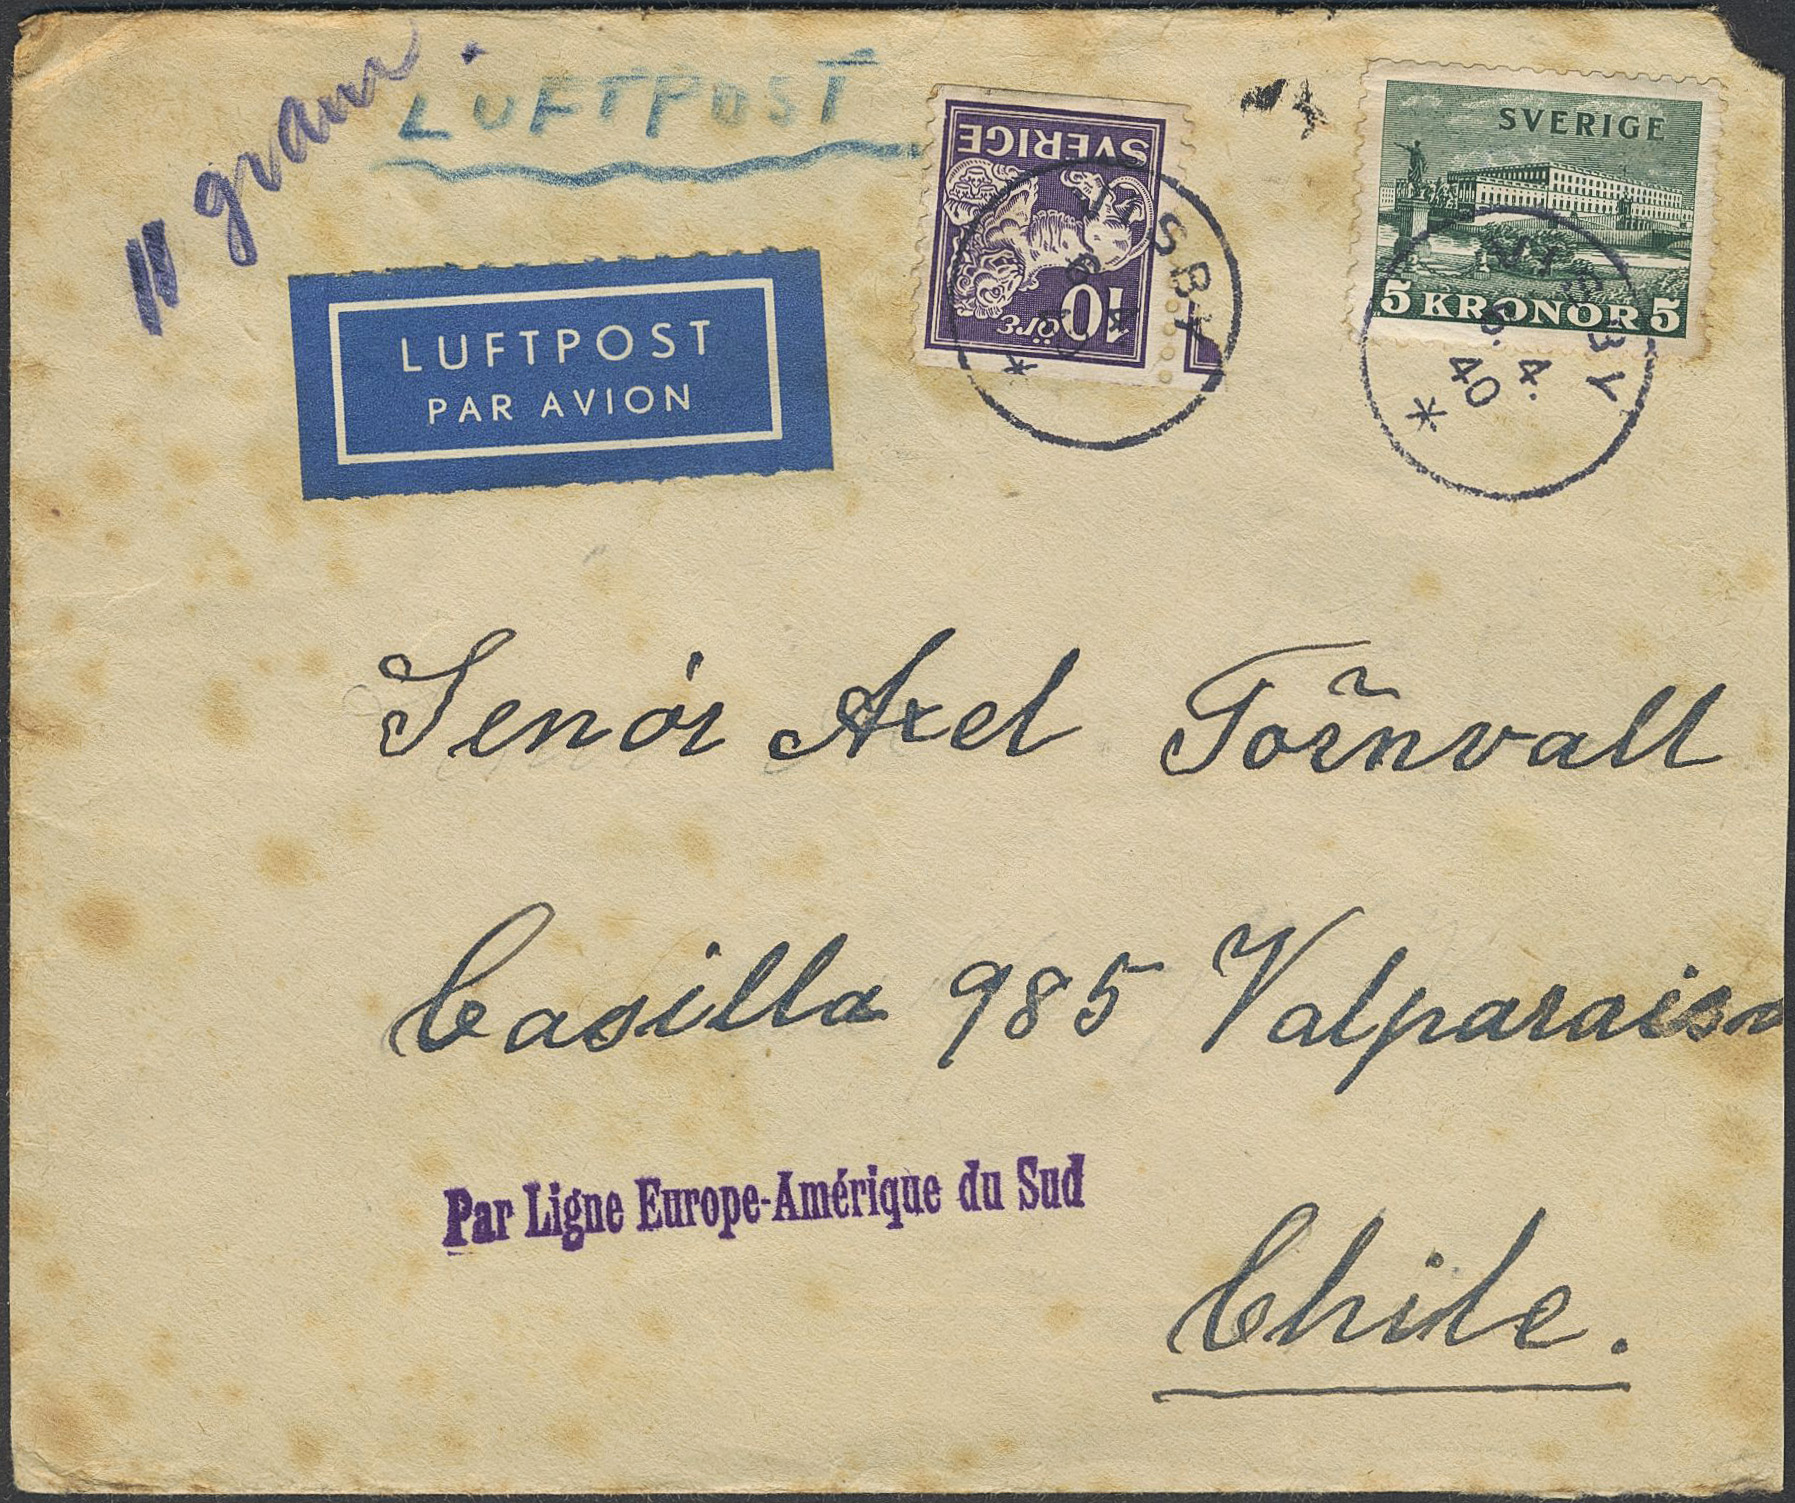 11 gram.
LUFTPOST
LUFTPOST
PAR AVION
SVERIGE
10 öre
VISBY
SVERIGE
5 KRONOR 5
VISBY
5.4.
40
Senór Axel Törnvall
Casilla 985 Valparaiso
Par Ligne Europe-Amérique du Sud
Chile.